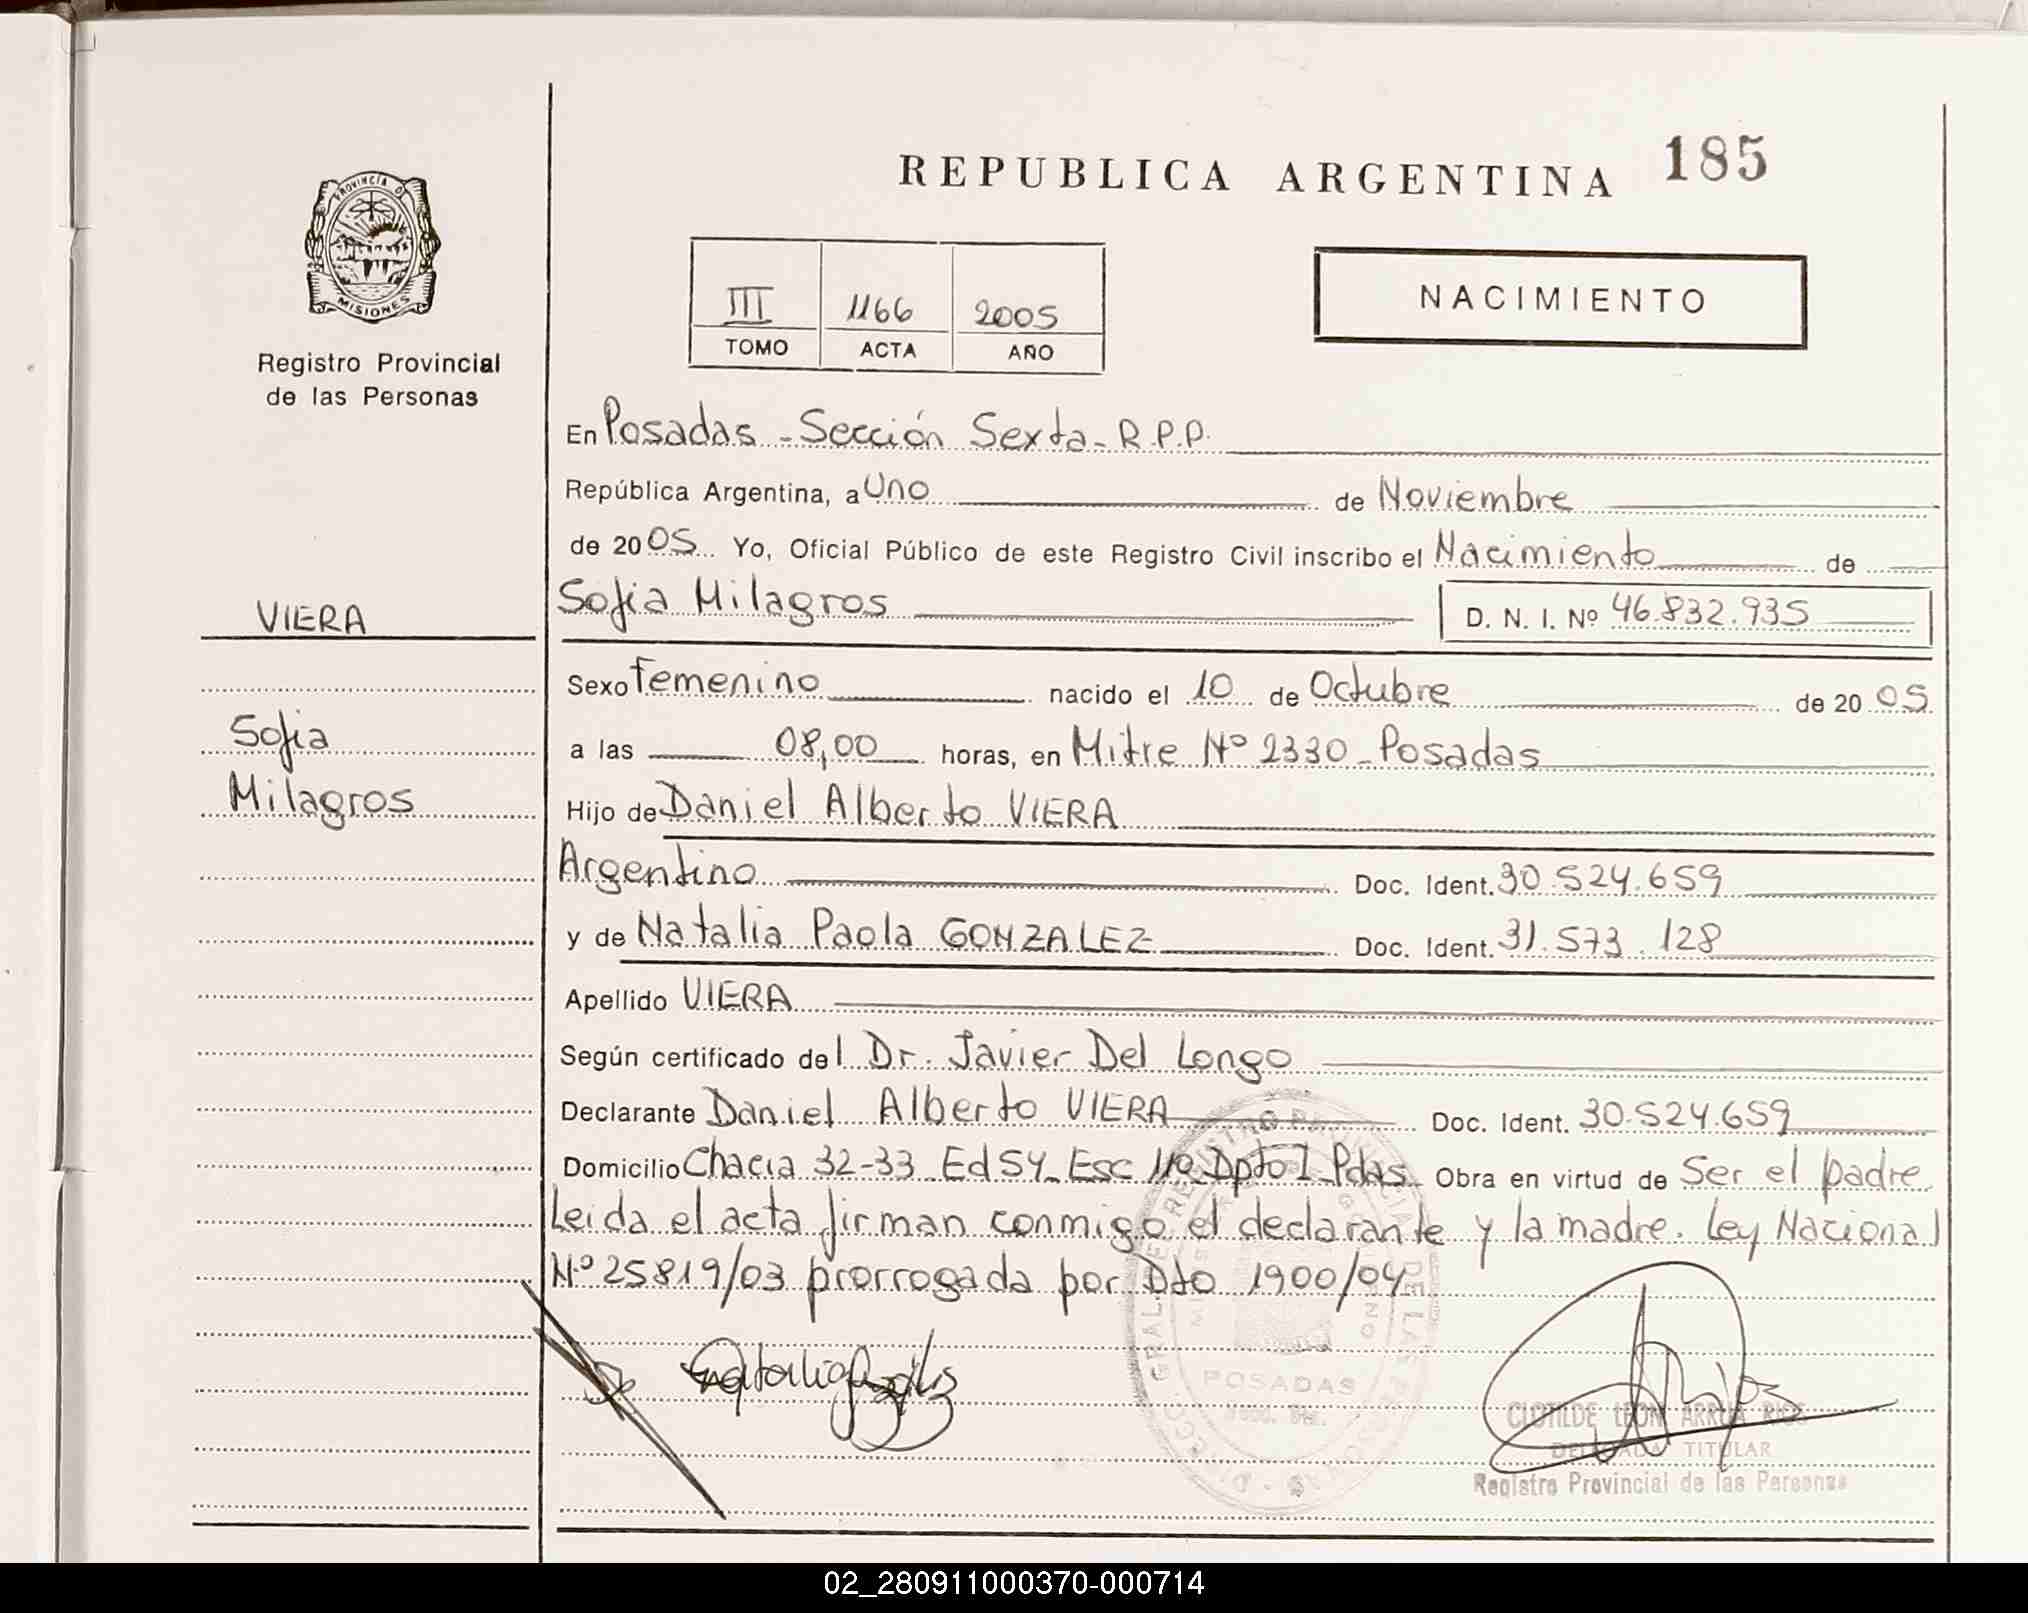 REPUBLICA ARGENTINA 185
PROVINCIA D
MISIONES
Registro Provincial
de las Personas
III 1166 2005
TOMO ACTA AÑO
NACIMIENTO
En Posadas - Sección Sexta - R.P.P.
República Argentina, a Uno de Noviembre
de 2005 Yo, Oficial Público de este Registro Civil inscribo el Nacimiento de
VIERA
Sofia Milagros D. N. I. Nº 46.832.935
Sexo Femenino nacido el 10 de Octubre de 2005
Sofia
a las 08,00 horas, en Mitre Nº 2330 - Posadas
Milagros
Hijo de Daniel Alberto VIERA
Argentino Doc. Ident. 30.524.659
y de Natalia Paola GONZALEZ Doc. Ident. 31.573.128
Apellido VIERA
Según certificado del Dr. Javier Del Longo
Declarante Daniel Alberto VIERA Doc. Ident. 30.524.659
Domicilio Chacra 32-33 Ed 54 Esc Dpto I Pdas. Obra en virtud de Ser el padre
Leida el acta firman conmigo el declarante y la madre. Ley Nacional
Nº 25819/03 prorrogada por Dto 1900/04
POSADAS
CLOTILDE LEON ARRUA RIOS
DELEGADA TITULAR
Registro Provincial de las Personas
02_280911000370-000714